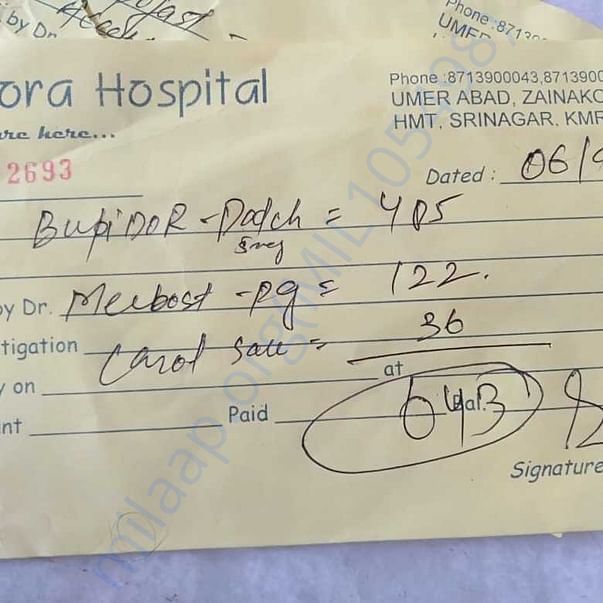 by Dr.
Phone :8713900
UMER
ora Hospital
Phone :8713900043,8713900
UMER ABAD, ZAINAKO
HMT, SRINAGAR. KMR
are here...
2693
Dated : 06/
BupiDOR - Patch = 485
5mg
by Dr. Mecbost - pg = 122.
tigation Carol = 36
y on at
nt Paid 643
Signature
milaap.org/MIL